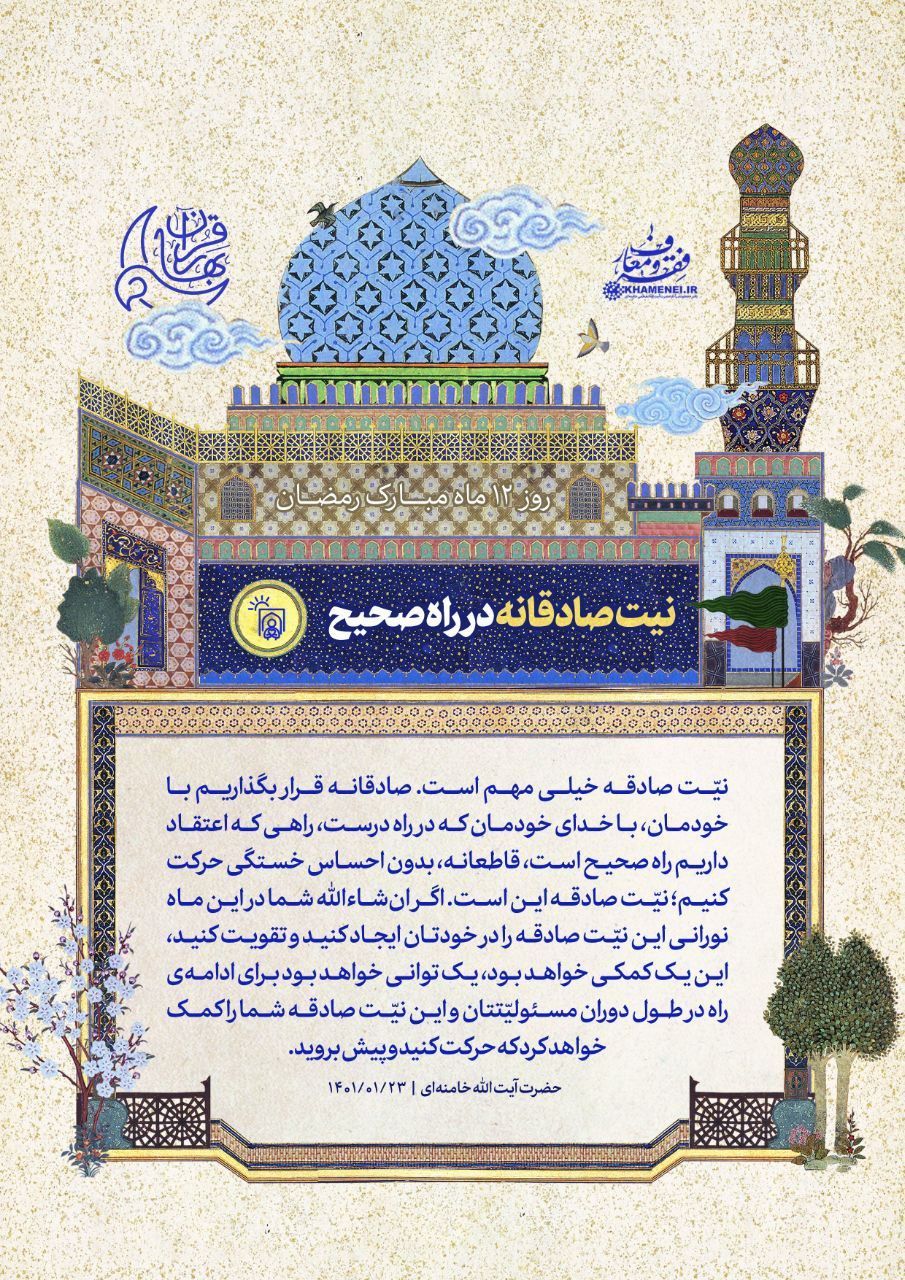 بهار قرآن
فقه و معارف
KHAMENEI.IR
روز ۱۲ ماه مبارک رمضان
نیت صادقانه در راه صحیح
نیّت صادقه خیلی مهم است. صادقانه قرار بگذاریم با
خودمان، با خدای خودمان که در راه درست، راهی که اعتقاد
داریم راه صحیح است، قاطعانه، بدون احساس خستگی حرکت
کنیم؛ نیّت صادقه این است. اگر ان‌شاءالله شما در این ماه
نورانی این نیّت صادقه را در خودتان ایجاد کنید و تقویت کنید،
این یک کمکی خواهد بود، یک توانی خواهد بود برای ادامه‌ی
راه در طول دوران مسئولیّتتان و این نیّت صادقه شما را کمک
خواهد کرد که حرکت کنید و پیش بروید.
حضرت آیت الله خامنه‌ای | ۱۴۰۱/۰۱/۲۳